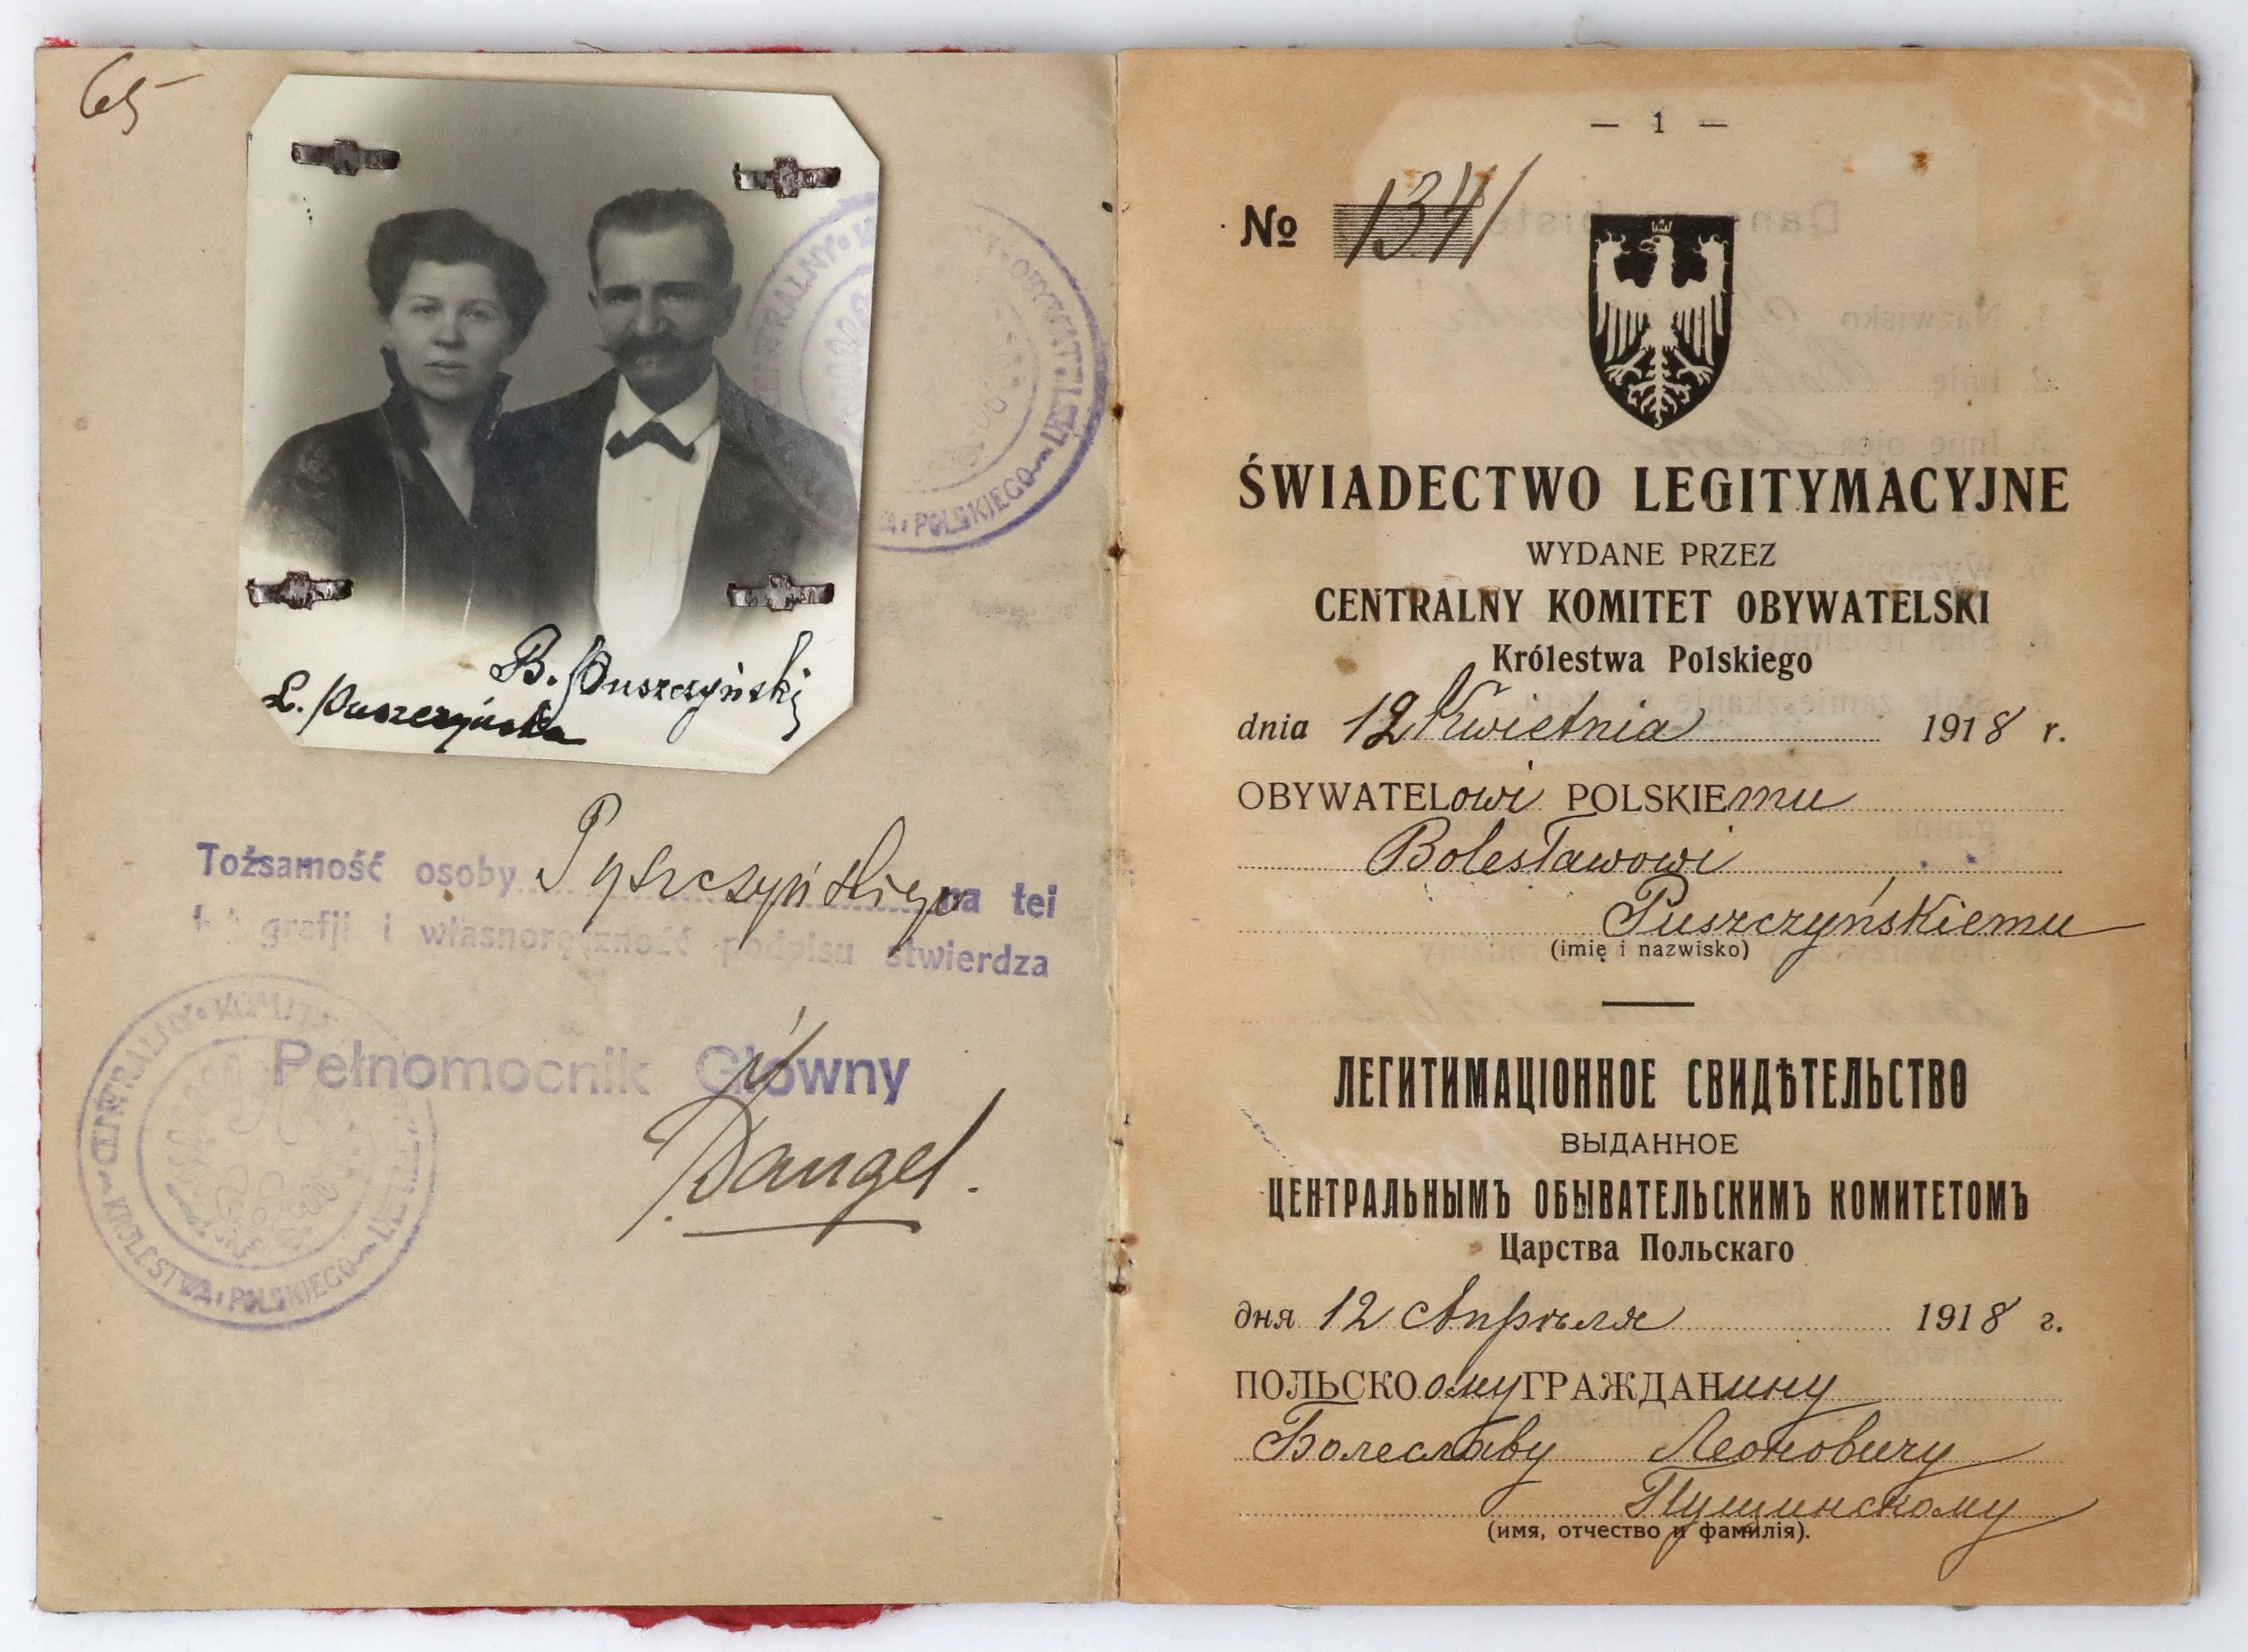 65
CENTRALNY • KOMITET OBYWATELSKI
KRÓLESTWA • POLSKIEGO
B. Puszczyński
L. Puszczyńska
Tożsamość osoby Pyszczyńskiego na tej
fotografji i własnoręczność podpisu stwierdza
CENTRALNY • KOMITET OBYWATELSKI
KRÓLESTWA • POLSKIEGO
Pełnomocnik Główny
Dangel.
— 1 —
№ 1341
ŚWIADECTWO LEGITYMACYJNE
WYDANE PRZEZ
CENTRALNY KOMITET OBYWATELSKI
Królestwa Polskiego
dnia 12 Kwietnia 1918 r.
OBYWATELowi POLSKIEmu
Bolesławowi
Puszczyńskiemu
(imię i nazwisko)
ЛЕГИТИМАЦІОННОЕ СВИДѢТЕЛЬСТВО
ВЫДАННОЕ
ЦЕНТРАЛЬНЫМЪ ОБЫВАТЕЛЬСКИМЪ КОМИТЕТОМЪ
Царства Польскаго
дня 12 Апрѣля 1918 г.
ПОЛЬСКОому ГРАЖДАНину
Болеславу Леоновичу
Пущинскому
(имя, отчество и фамилія).